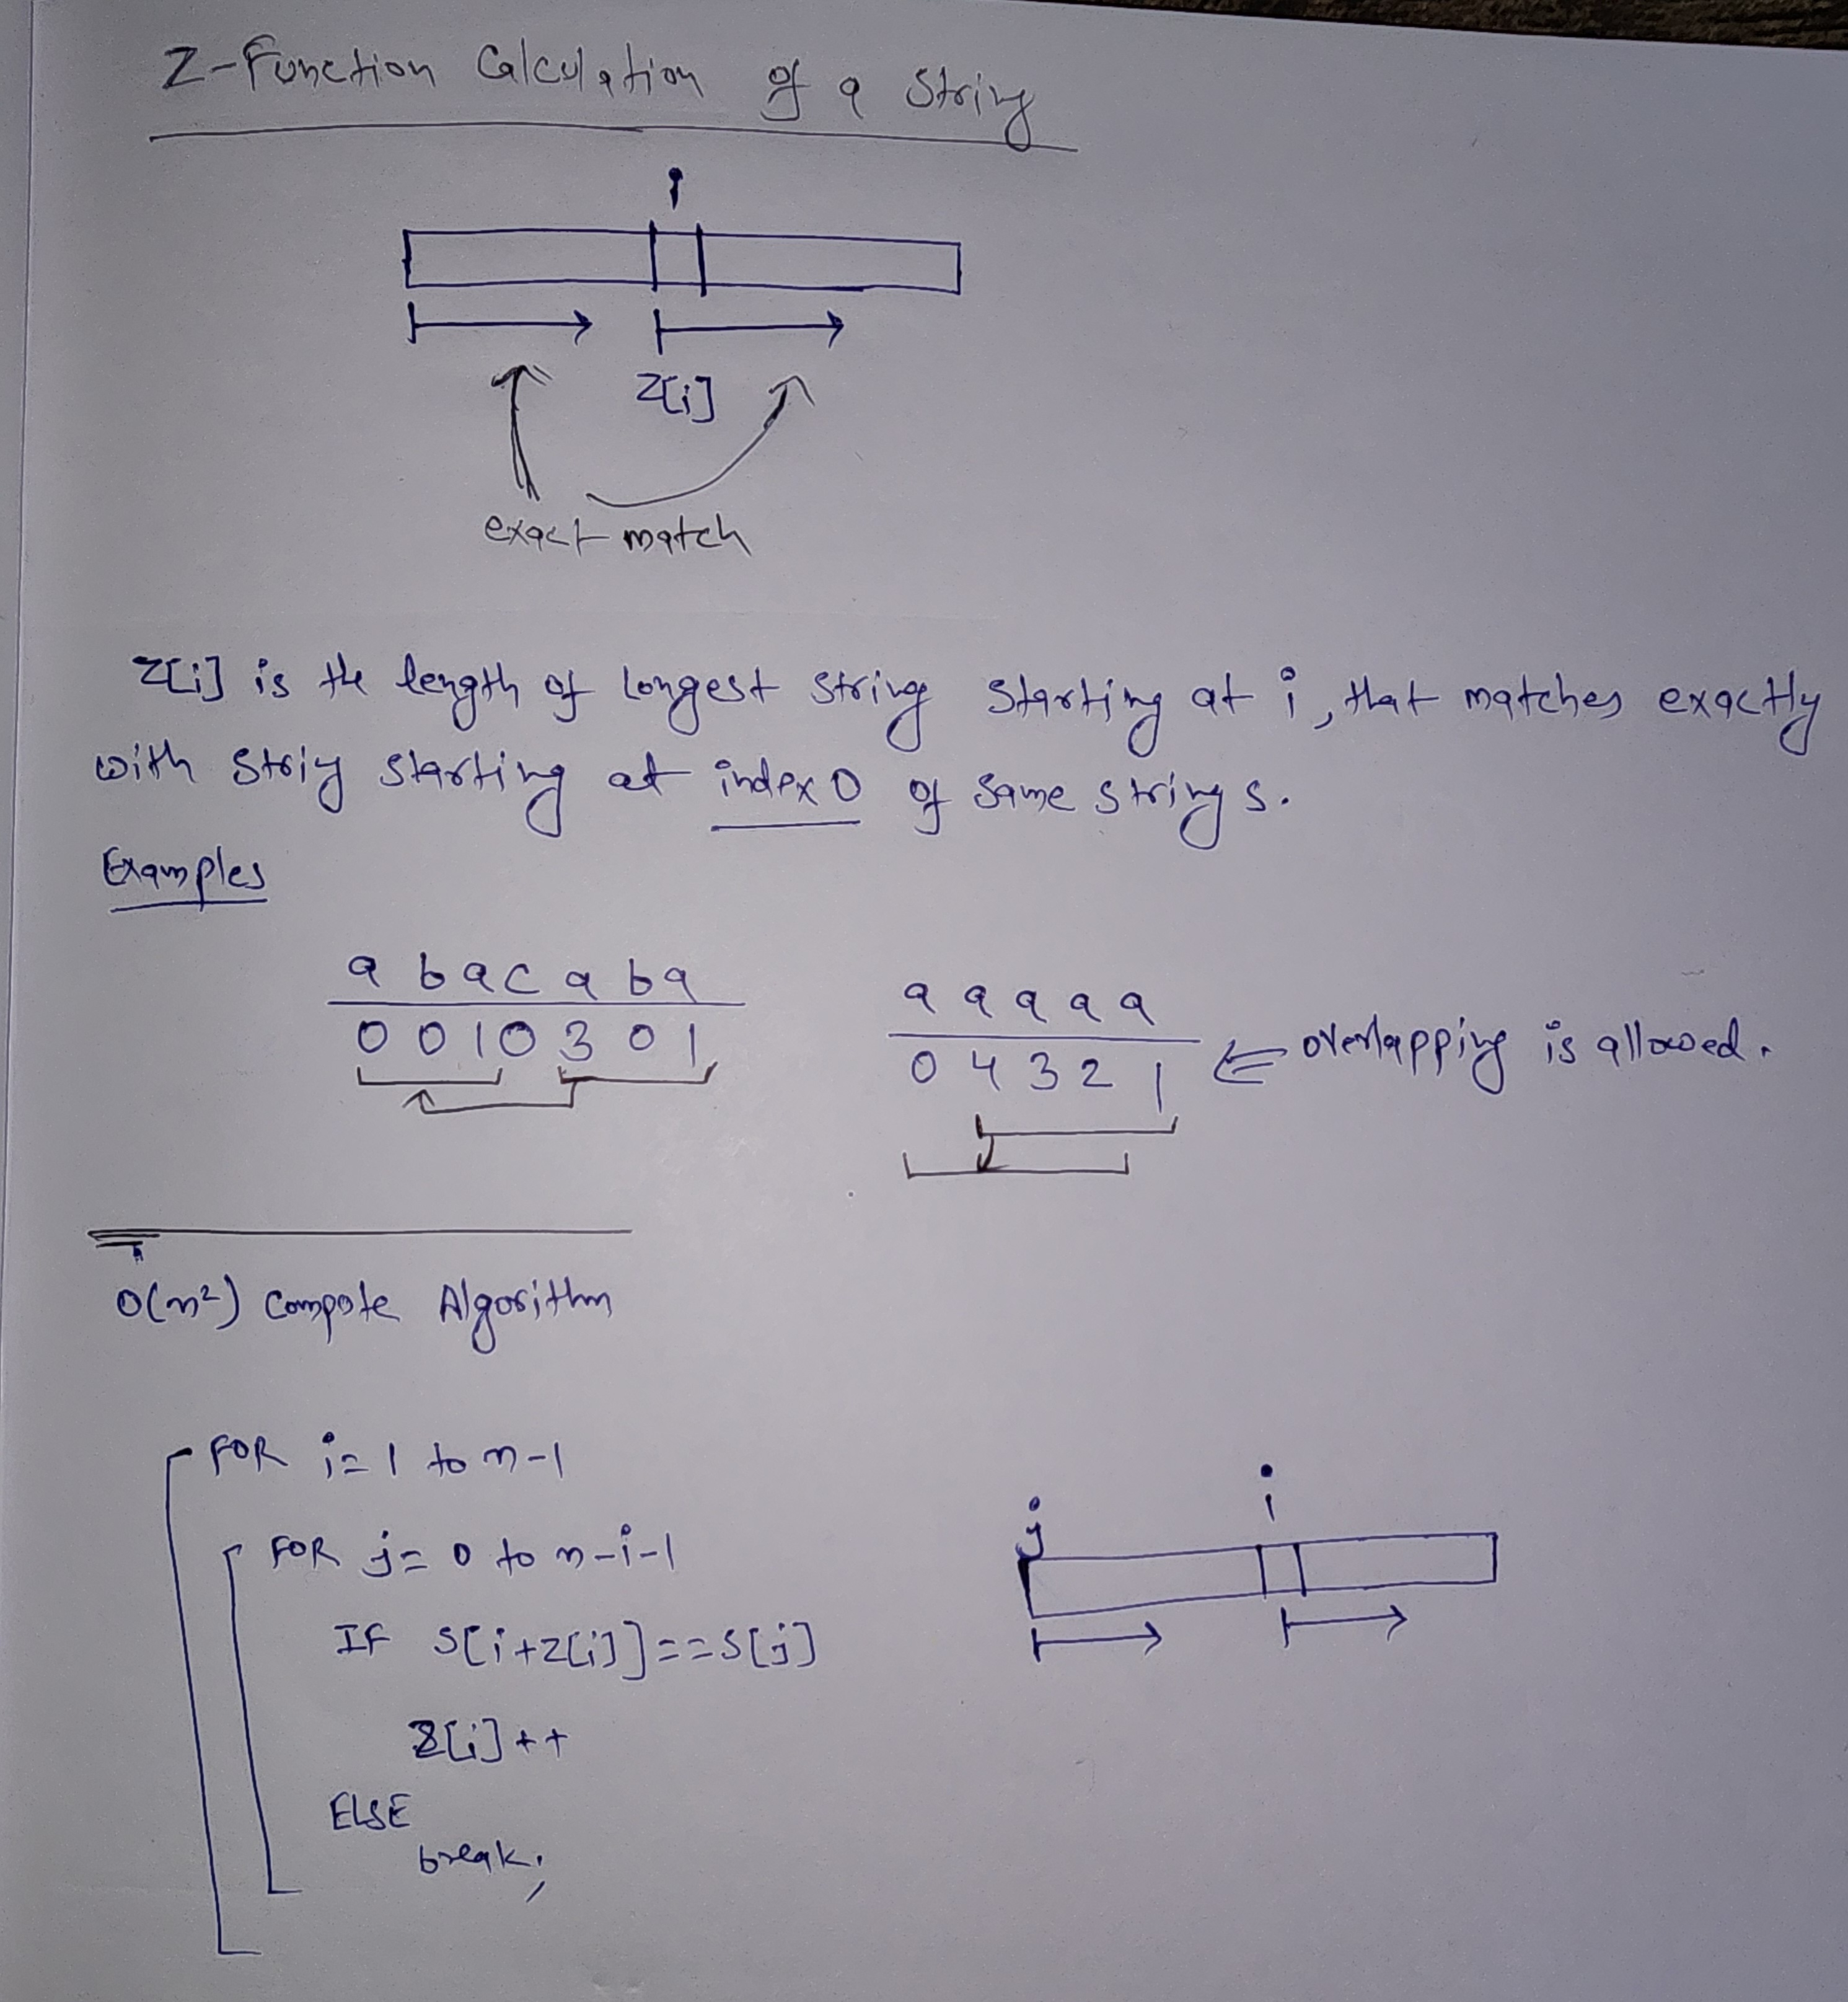 Z-Function Calculation of a String
i
Z[i]
exact match
Z[i] is the length of longest string starting at i, that matches exactly
with striy starting at index 0 of same string s.
Examples
a b a c a b a
0 0 1 0 3 0 1
a a a a a
0 4 3 2 1 ⇐ overlapping is allowed.
O(n²) Compute Algorithm
FOR i=1 to n-1
FOR j=0 to n-i-1
IF S[i+Z[i]]==S[j]
Z[i]++
ELSE
break;
j i